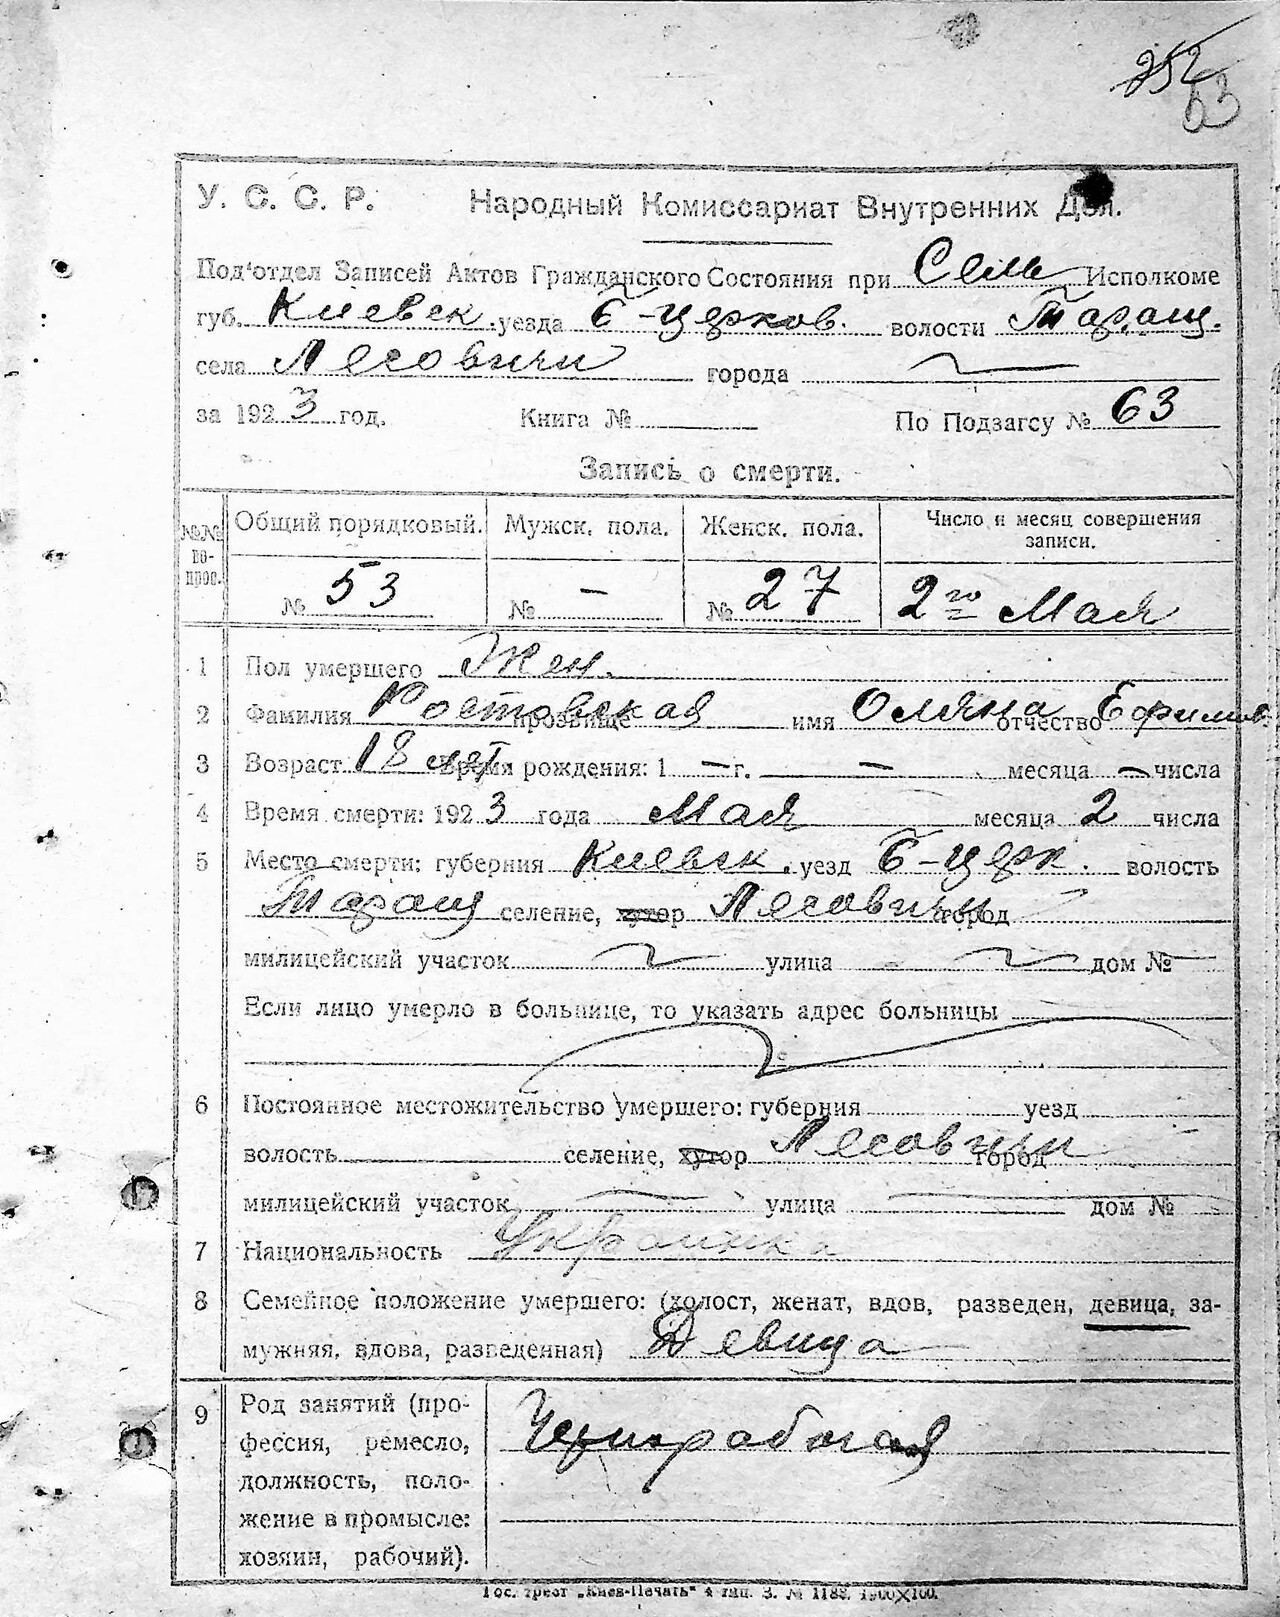 252
63
У. С. С. Р. Народный Комиссариат Внутренних Дел.
Под'отдел Записей Актов Гражданского Состояния при Сель Исполкоме
губ. Киевск. уезда Б-церков. волости Таращ.
села Лесовичи города
за 1923 год. Книга № По Подзагсу № 63
Запись о смерти.
№№ вопрос. Общий порядковый. Мужск. пола. Женск. пола. Число и месяц совершения записи.
№ 53 № - № 27 2го Мая
1 Пол умершего Жен.
2 Фамилия Ростовская прозвище имя Оляна отчество Ефимов.
3 Возраст 18 лет Время рождения: 1 — г. — месяца — числа
4 Время смерти: 1923 года Мая месяца 2 числа
5 Место смерти: губерния Киевск. уезд Б-церк. волость
Таращ селение, хутор Лесовичи город
милицейский участок улица дом №
Если лицо умерло в больнице, то указать адрес больницы
6 Постоянное местожительство умершего: губерния уезд
волость селение, хутор Лесовичи город
милицейский участок улица дом №
7 Национальность Украинка
8 Семейное положение умершего: (холост, женат, вдов, разведен, девица, за-
мужняя, вдова, разведенная) Девица
9 Род занятий (про- Чернорабочая
фессия, ремесло,
должность, поло-
жение в промысле:
хозяин, рабочий).
Гос. трест „Киев-Печать" 4 тип. З. № 1188. 1900×100.